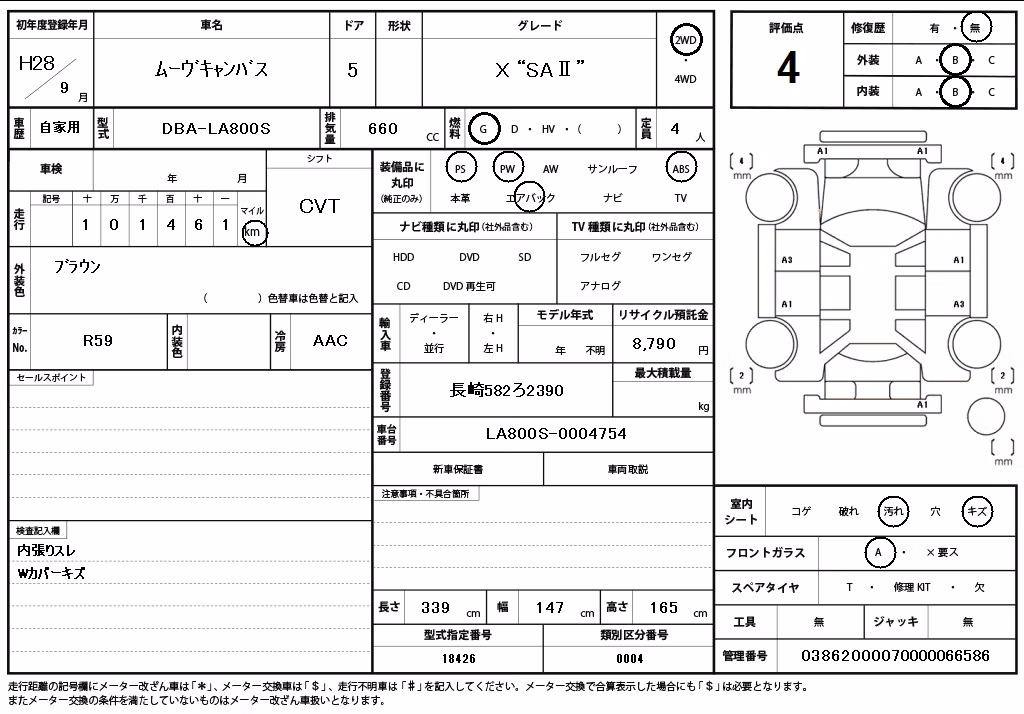 初年度登録年月 車名 ドア 形状 グレード
H28 9 月 ムーヴキャンバス 5 X “SAⅡ” 2WD ・ 4WD
車歴 自家用 型式 DBA-LA800S 排気量 660 CC 燃料 G D ・ HV ・ ( ) 定員 4 人
車検 年 月 シフト
走行 記号 十 万 千 百 十 一 マイル
1 0 1 4 6 1 km CVT
外装色 ブラウン
( ) 色替車は色替と記入
カラーNo. R59 内装色 冷房 AAC
セールスポイント
検査記入欄
内張りスレ
Wカバーキズ
装備品に丸印 (純正のみ) PS PW AW サンルーフ ABS
本革 エアバック ナビ TV
ナビ種類に丸印(社外品含む) TV 種類に丸印(社外品含む)
HDD DVD SD フルセグ ワンセグ
CD DVD 再生可 アナログ
輸入車 ディーラー ・ 並行 右 H ・ 左 H モデル年式 年 不明 リサイクル預託金 8,790 円
登録番号 長崎582ろ2390 最大積載量 kg
車台番号 LA800S-0004754
新車保証書 車両取説
注意事項・不具合箇所
長さ 339 cm 幅 147 cm 高さ 165 cm
型式指定番号 類別区分番号
18426 0004
評価点 4
修復歴 有 ・ 無
外装 A ・ B ・ C
内装 A ・ B ・ C
A1
4 mm 4 mm
A3 A1
A1 A3
2 mm 2 mm
A1
mm
室内シート コゲ 破れ 汚れ 穴 キズ
フロントガラス A ・ ×要ス
スペアタイヤ T ・ 修理 KIT ・ 欠
工具 無 ジャッキ 無
管理番号 03862000070000066586
走行距離の記号欄にメーター改ざん車は「＊」、メーター交換車は「＄」、走行不明車は「＃」を記入してください。メーター交換で合算表示した場合にも「＄」は必要となります。
またメーター交換の条件を満たしていないものはメーター改ざん車扱いとなります。